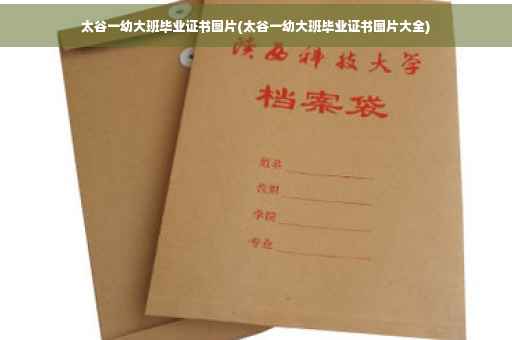 太谷一幼大班毕业证书图片(太谷一幼大班毕业证书图片大全)
陕西科技大学
档案袋
姓名
学院
专业